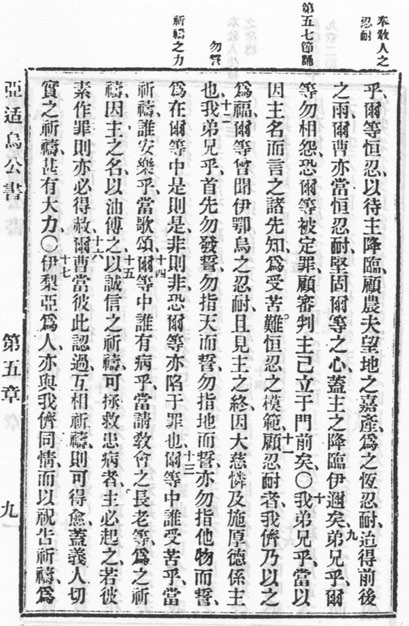 奉敎人之
忍耐
第五七節誦
勿誓
祈禱之力
乎、爾等恒忍以待主降臨、顧農夫望地之嘉產、爲之恆忍耐、迨得前後
之雨、爾曹亦當恒忍耐、堅固爾等之心、蓋主之降臨伊邇矣、九弟兄乎、爾
等勿相怨、恐爾等被定罪、顧審判主已立于門前矣、〇十我弟兄乎、當以
因主名而言之諸先知、爲受苦難恒忍之模範、十一顧忍耐者、我儕乃以之
爲福、爾等曾聞伊鄂烏之忍耐、且見主之終、因大慈憐及施厚德係主
也、十二我弟兄乎、首先勿發誓、勿指天而誓、勿指地而誓、亦勿指他物而誓、
爲在爾等中、是則是、非則非、恐爾等亦陷于罪也、十三爾等中誰受苦乎、當
祈禱、誰安樂乎、當歌頌、十四爾等中誰有病乎、當請敎會之長老等、爲之祈
禱、因主之名以油傅之、十五以誠信之祈禱、可拯救患病者、主必起之、若彼
素作罪、則亦必得赦、十六爾曹當彼此認過、互相祈禱、則可得愈、蓋義人切
實之祈禱、甚有大力、〇十七伊梨亞爲人、亦與我儕同情、而以祝告祈禱、爲
亞适烏公書
第五章
九